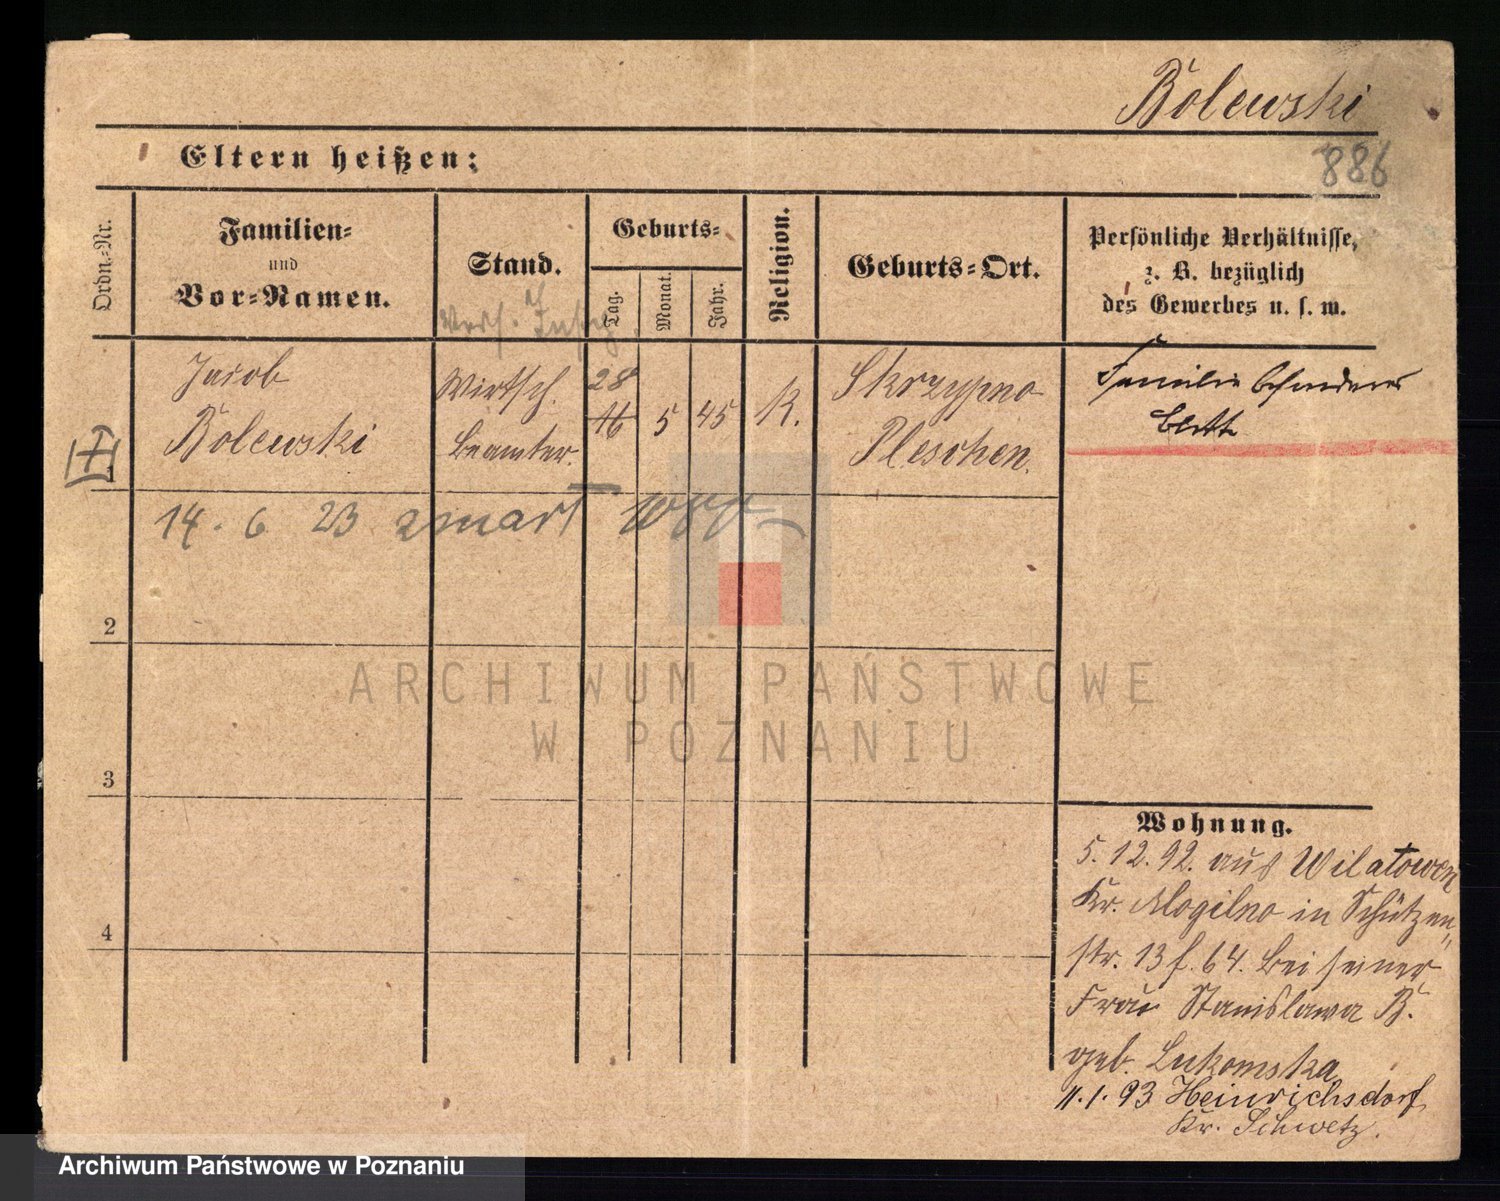 Bolewski
Eltern heißen:
886
Ordn.-Nr.
Familien-
und
Vor-Namen.
Stand.
Geburts-
Tag.
Monat.
Jahr.
Religion.
Geburts-Ort.
Persönliche Verhältnisse,
z. B. bezüglich
des Gewerbes u. s. w.
1
Jacob
Bolewski
Wirtsch.
Beamter.
28
16
5
45
K.
Skrzypno
Pleschen.
Familie besonderes
Blatt
14. 6 23 zmarł
2
3
4
ARCHIWUM PAŃSTWOWE
W POZNANIU
Wohnung.
5.12.92. aus Wilatowen
Kr. Mogilno in Schützen„
str. 13 f. 64. bei seiner
Frau Stanislawa B.
geb. Lukomska
11.1.93 Heinrichsdorf
Kr. Schwetz.
Archiwum Państwowe w Poznaniu